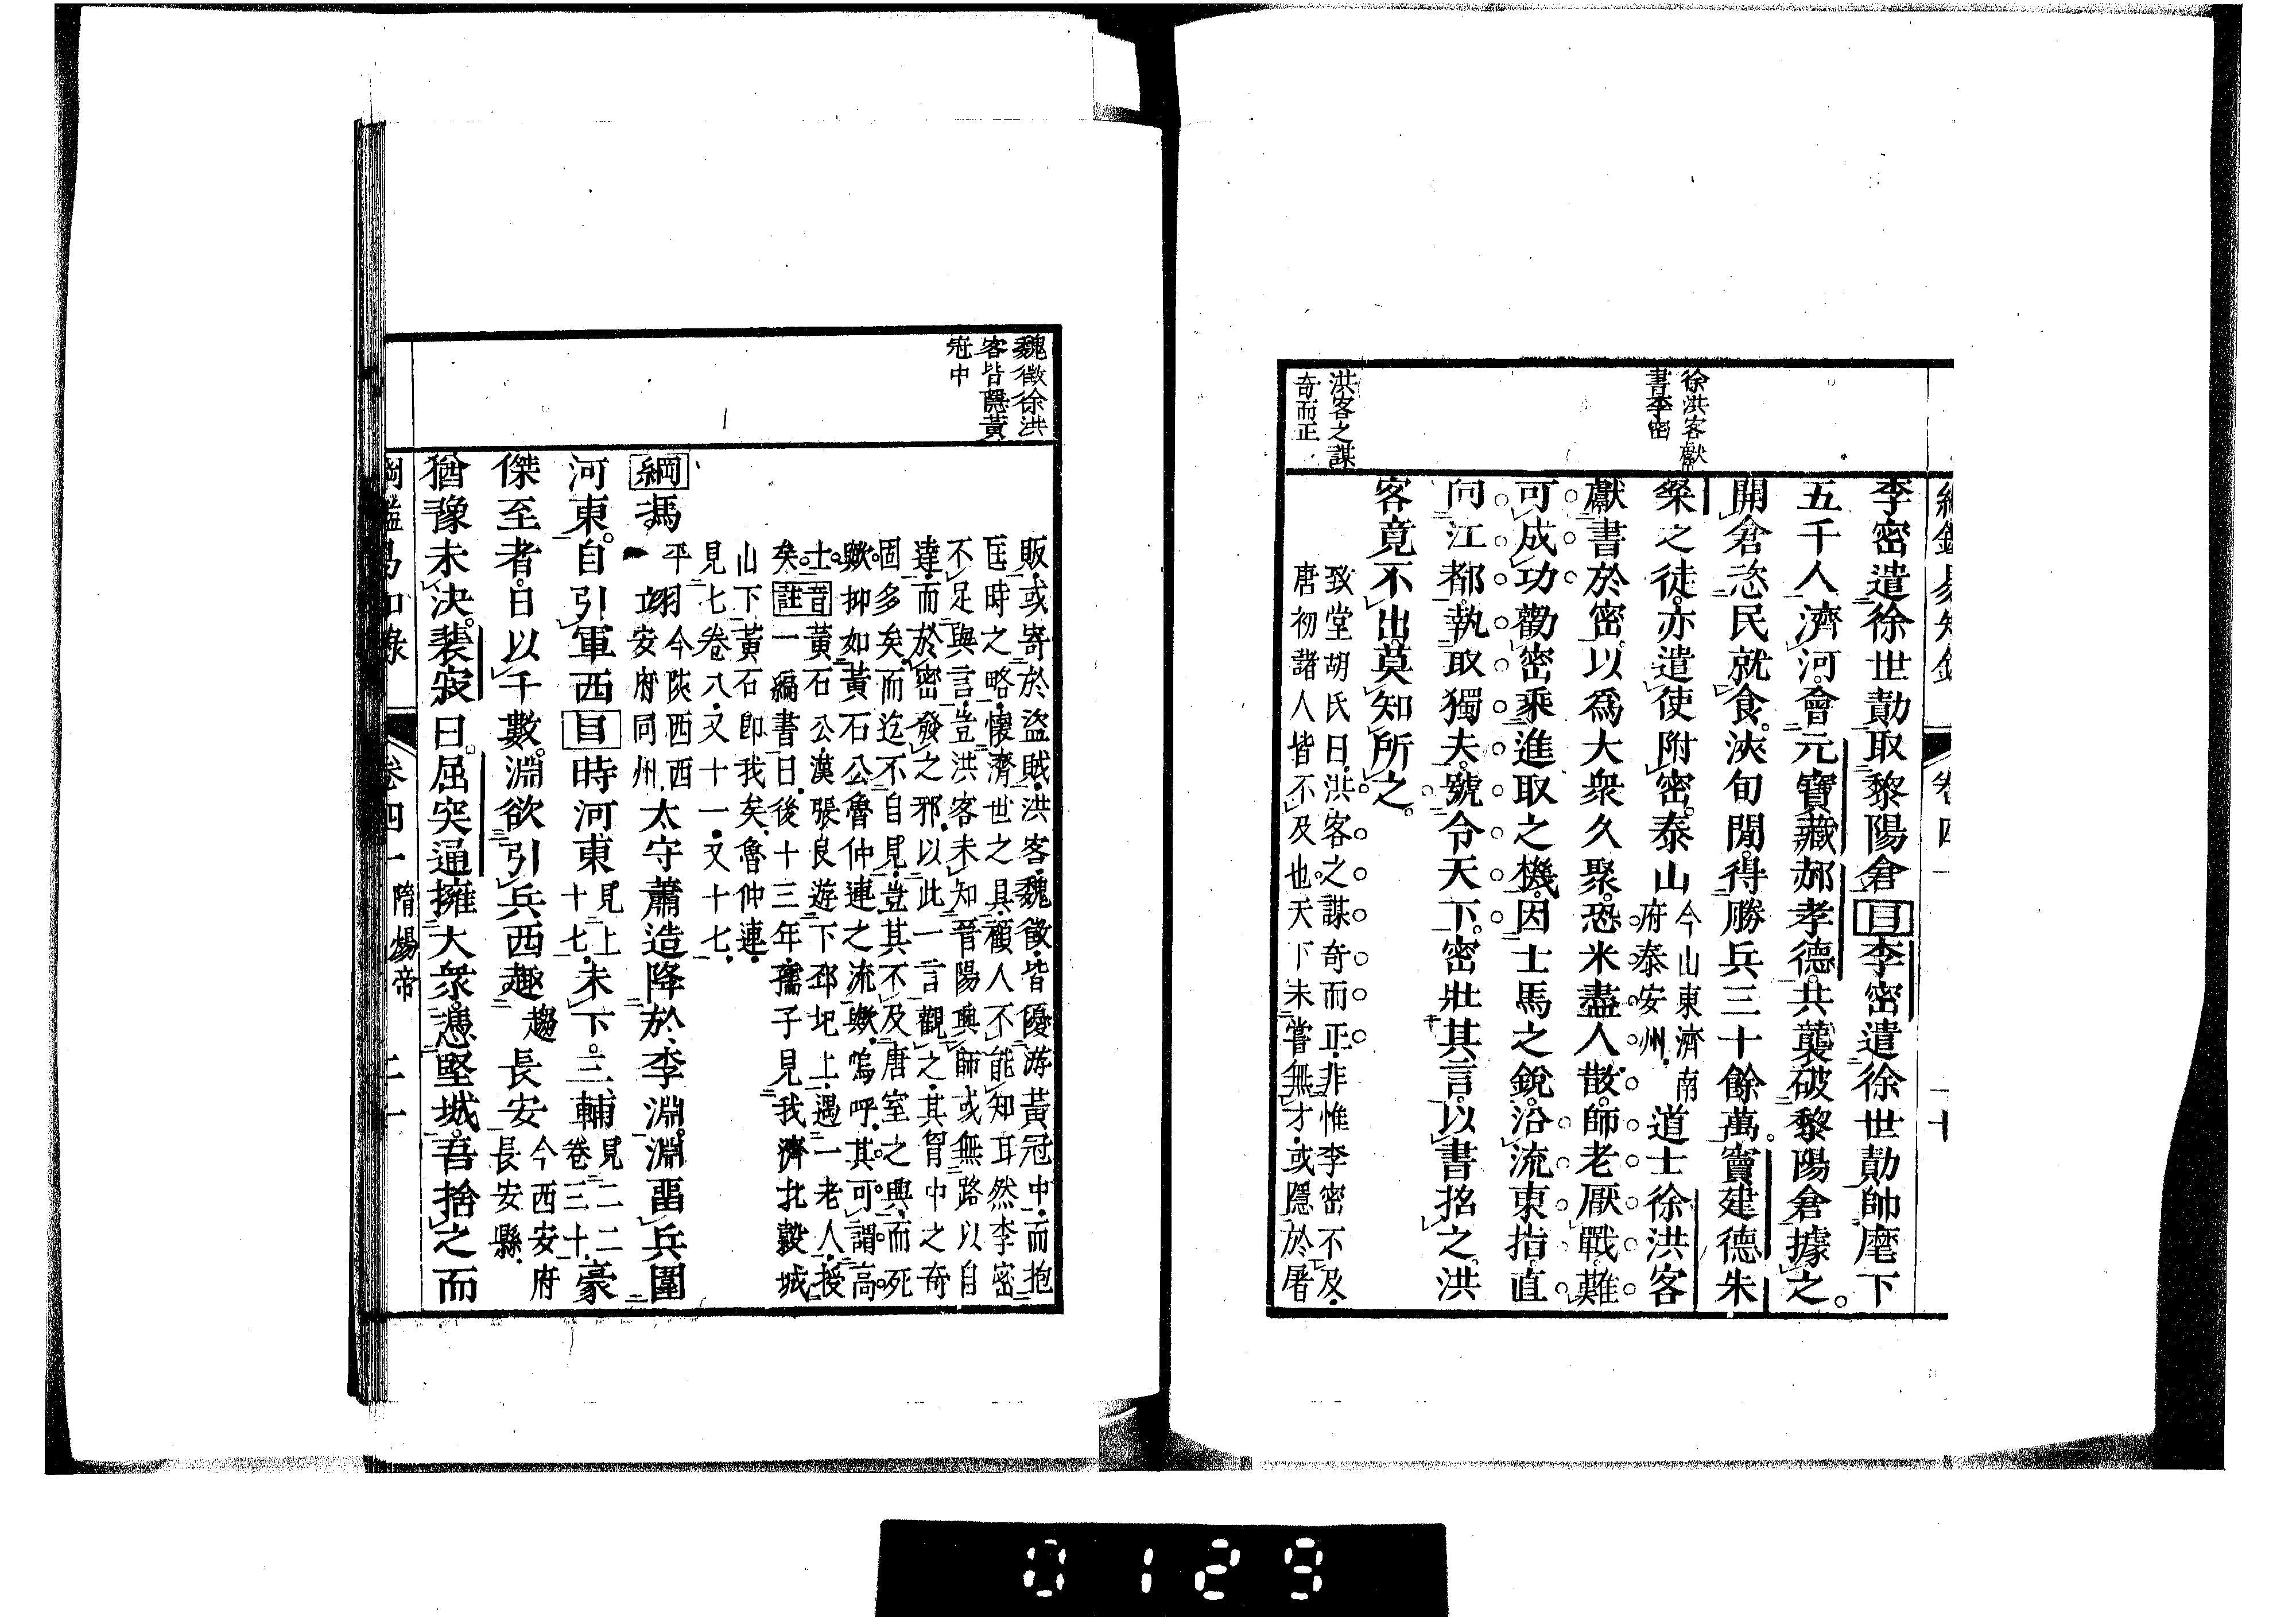 綱鑑易知錄 卷四一 十
徐洪客獻
書李密
洪客之謀
奇而正
李密遣徐世勣取黎陽倉目李密遣徐世勣帥麾下
五千人濟河會元寶藏郝孝德共襲破黎陽倉據之
開倉恣民就食浹旬閒得勝兵三十餘萬竇建德朱
粲之徒亦遣使附密泰山今山東濟南府泰安州道士徐洪客
獻書於密以爲大衆久聚恐米盡人散師老厭戰難
可成功勸密乘進取之機因士馬之銳沿流東指直
向江都執取獨夫號令天下密壯其言以書招之洪
客竟不出莫知所之
致堂胡氏曰洪客之謀奇而正非惟李密不及
唐初諸人皆不及也天下未嘗無才或隱於屠
魏徵徐洪
客皆隱黃
冠中
販或寄於盜賊洪客魏徵皆優游黃冠中而抱
匡時之略懷濟世之具顧人不能知耳然李密
不足與言豈洪客未知晉陽輿師或無路以自
達而於密發之邪以此一言觀之其胷中之奇
固多矣而迄不自見豈其不及唐室之興而死
歟抑如黃石公魯仲連之流歟嗚呼其可謂高
士矣音註黃石公漢張良遊下邳圯上遇一老人授
一編書曰後十三年孺子見我濟北穀城
山下黃石卽我矣魯仲連
見七卷八又十一又十七
綱馮翊今陝西西安府同州太守蕭造降於李淵淵畱兵圍
河東自引軍西目時河東見上十七未下三輔見二二卷三十豪
傑至者日以千數淵欲引兵西趣趨長安今西安府長安縣
猶豫未決裴寂曰屈突通擁大衆憑堅城吾捨之而
綱鑑易知錄 卷四一 隋煬帝 二十一
0129